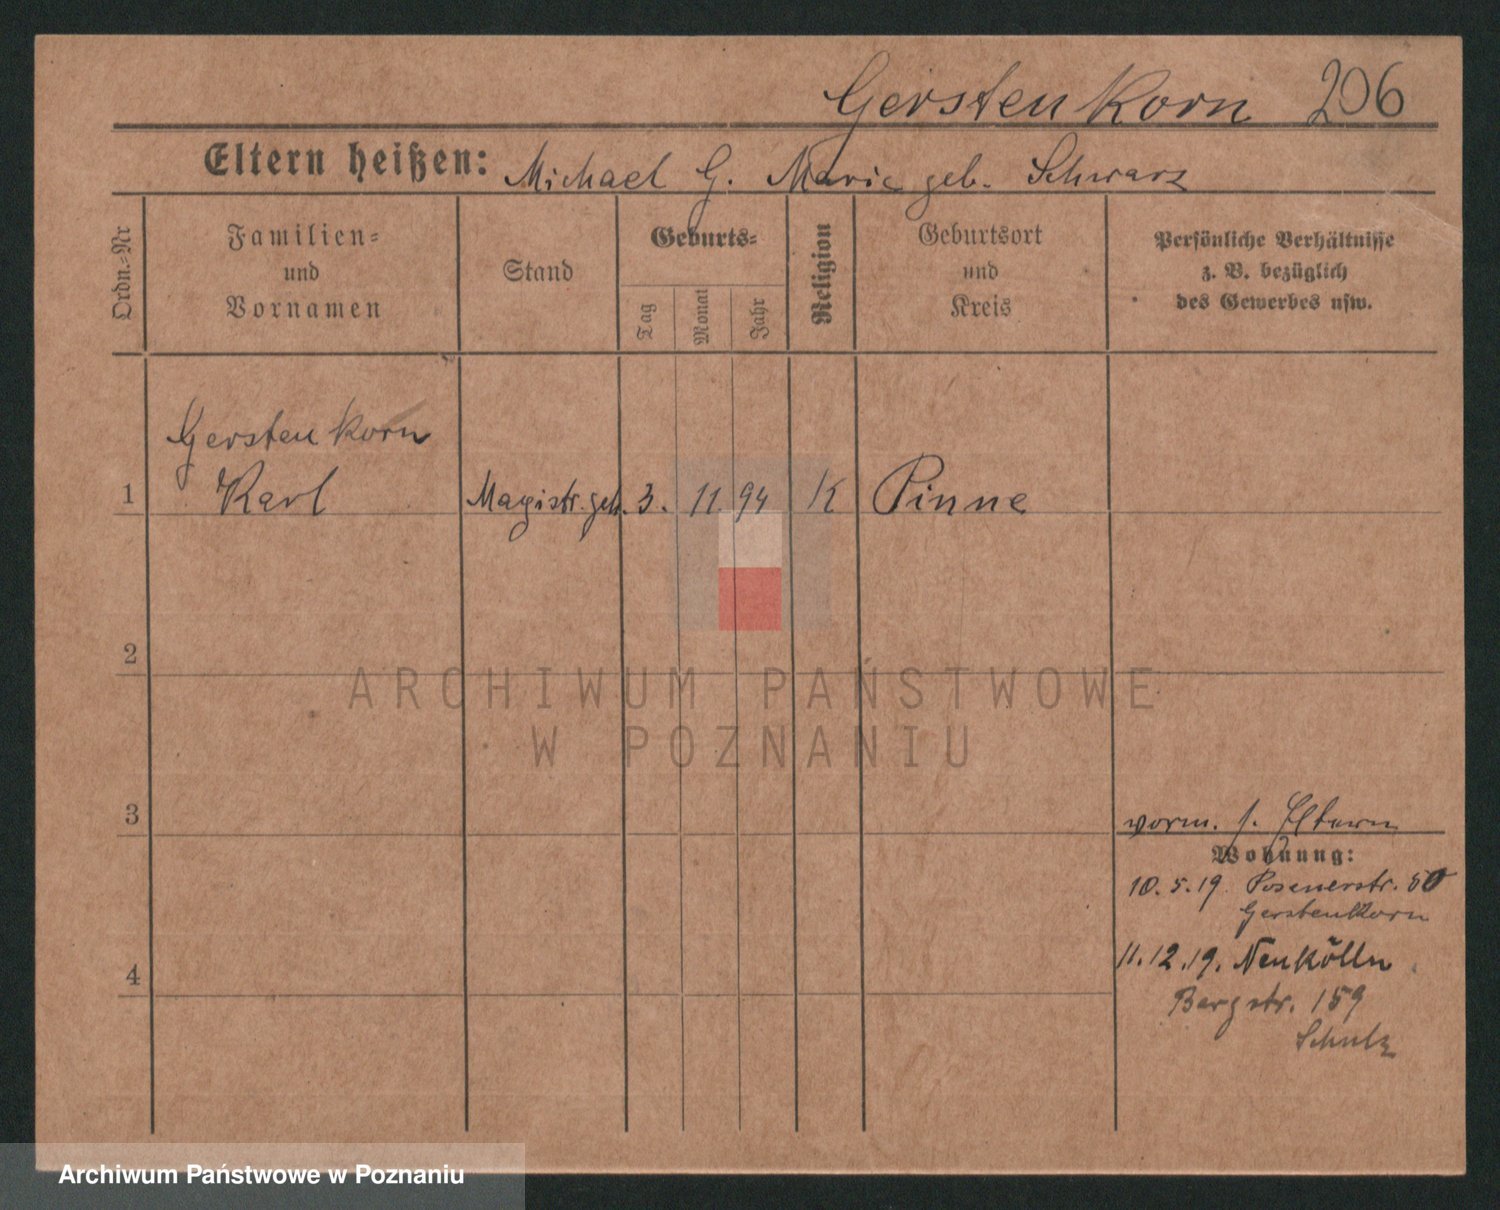 Gerstenkorn 206
Eltern heißen: Michael G. Marie geb. Schwarz
Ordn.-Nr
Familien-
und
Vornamen
Stand
Geburts-
Tag
Monat
Jahr
Religion
Geburtsort
und
Kreis
Persönliche Verhältnisse
z. B. bezüglich
des Gewerbes usw.
Gerstenkorn
1 Karl Magistr. geh. 3. 11. 94 K Pinne
2
ARCHIWUM PAŃSTWOWE
W POZNANIU
3
vorm. s. Eltern
Wohnung:
10.5.19. Posenerstr. 50
Gerstenkorn
4
11.12.19. Neukölln
Bergstr. 159
Schulz
Archiwum Państwowe w Poznaniu